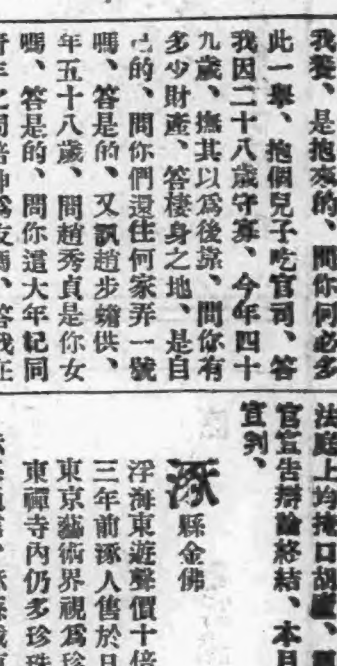 我養、是抱來的、問你何必多
此一舉、抱個兒子吃官司、答
我因二十八歲守寡、今年四十
九歲、撫其以爲後靠、問你有
多少財產、答棲身之地、是自
己的、問你們還住何家弄一號
嗎、答是的、又訊趙步蟾供、
年五十八歲、問趙秀貞是你女
嗎、答是的、問你這大年紀同
法庭上均掩口胡盧、
官宣告辯論終結、本月
宣判、
涿
縣金佛
浮海東遊聲價十倍
三年前涿人售於日
東京藝術界視爲珍
東禪寺內仍多珍珠